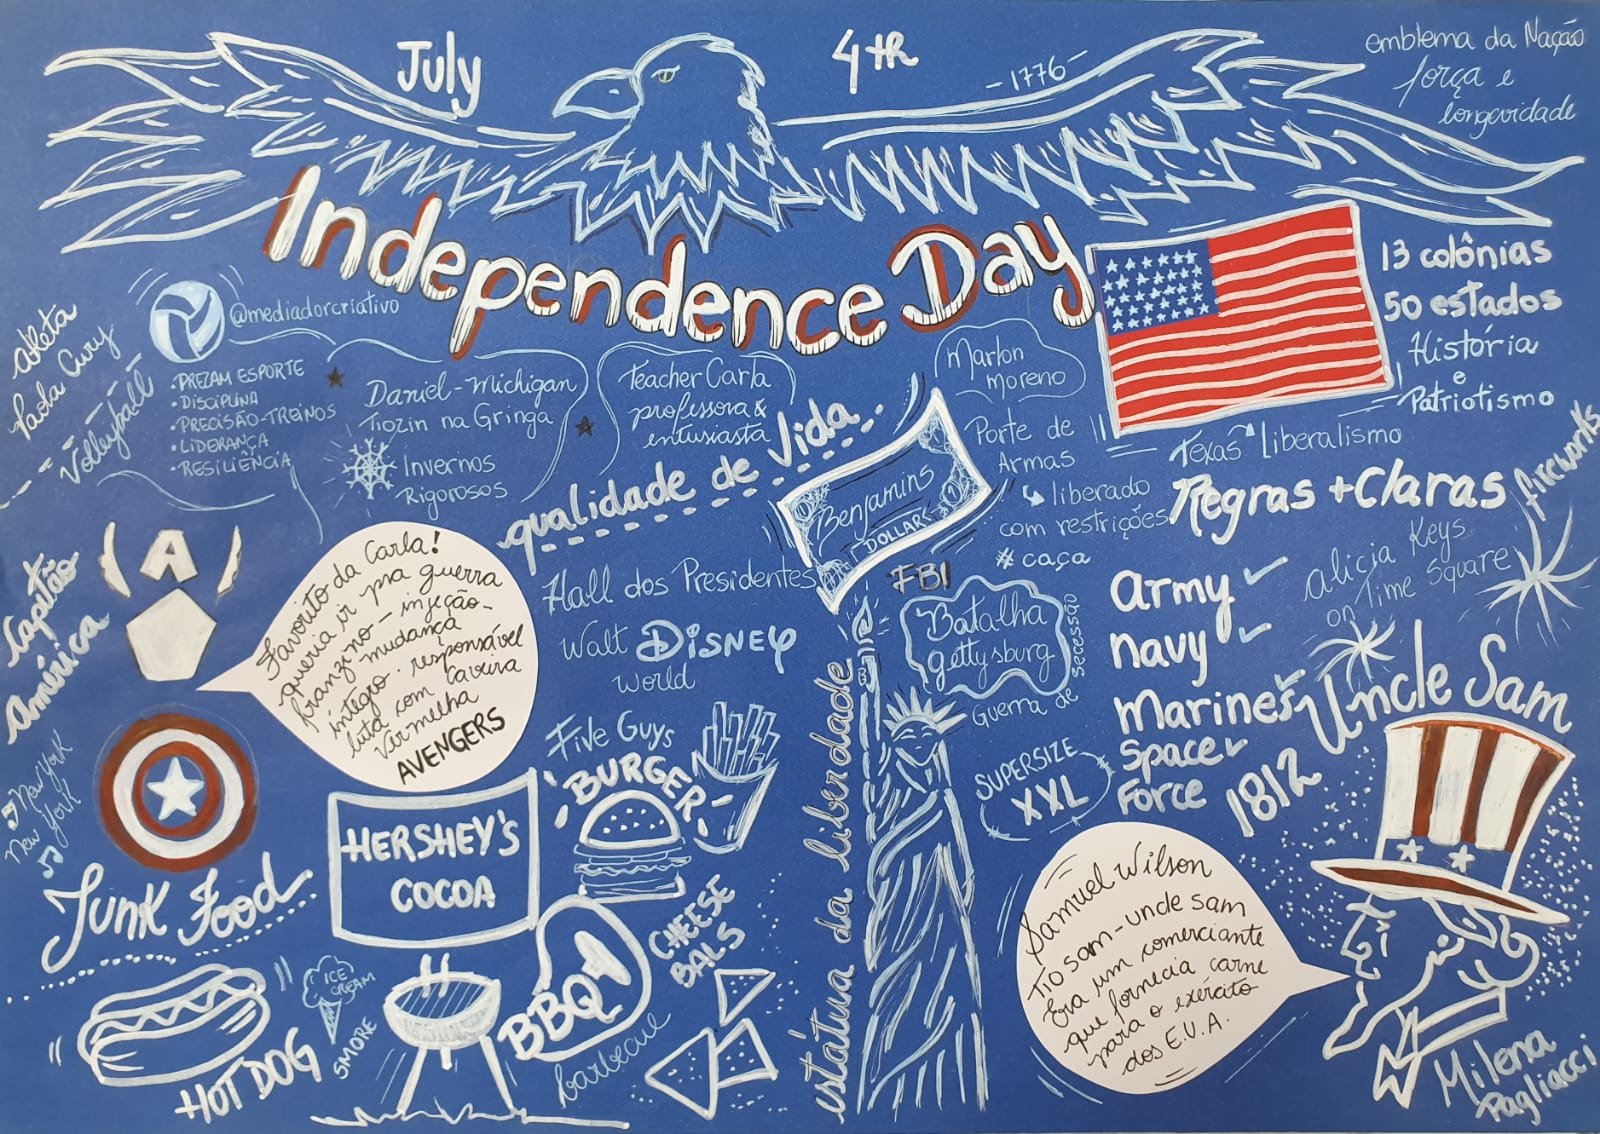 July
4th
-1776-
emblema da Nação
força e
longevidade
Independence Day
13 colônias
50 estados
História
e
Patriotismo
atleta
Paola Cury
Volleyball
@mediadorcriativo
• PREZAM ESPORTE
• DISCIPLINA
• PRECISÃO-TREINOS
• LIDERANÇA
• RESILIÊNCIA
Daniel-Michigan
Tiozin na Gringa
Invernos
Rigorosos
Teacher Carla
professora &
entusiasta
qualidade de vida
Marlon
moreno
Benjamins
DOLLAR
Porte de
Armas
liberado
com restrições
# caça
Texas Liberalismo
Regras +Claras
fireworks
Alicia Keys
on Time Square
Capitão
América
A
Favorito da Carla!
queria ir pra guerra
franzino - injeção -
mudança
íntegro. responsável
luta com Caveira
Vermelha
AVENGERS
Hall dos Presidentes
Walt DISNEY
World
FBI
Batalha
gettysburg
Guerra de secessão
Army
navy
Marines
Space
Force
Uncle Sam
1812
New York
New York
Five Guys
BURGER
SUPERSIZE
XXL
estátua da liberdade
HERSHEY'S
COCOA
Junk Food
HOT DOG
ICE
CREAM
SMORE
BBQ
barbecue
CHEESE
BALS
Samuel Wilson
Tio sam-uncle sam
Era um comerciante
que fornecia carne
para o exército
dos E.U.A.
Milena
Pagliacci